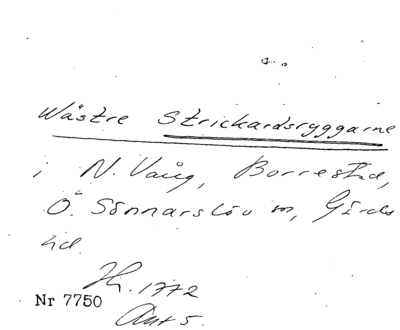 Wästre Strickardsryggarne
i N. Vång, Borrestad,
Ö. Sönnarslöv m, Gärds
hd.
Jh. 1772
Nr 7750
Ant 5.